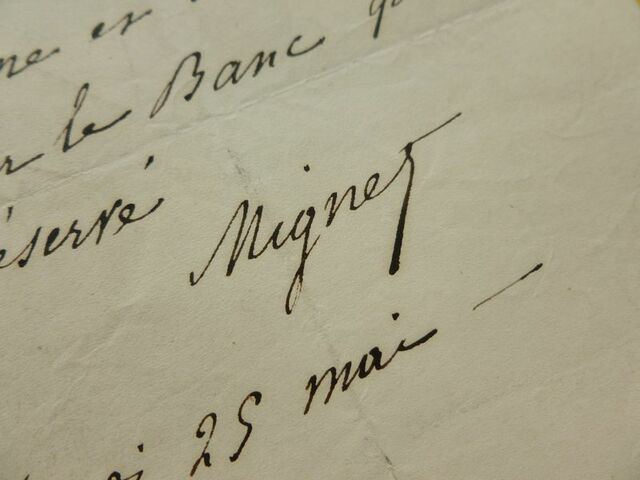 ne et
le Banc
éservé
Mignet
25 mai